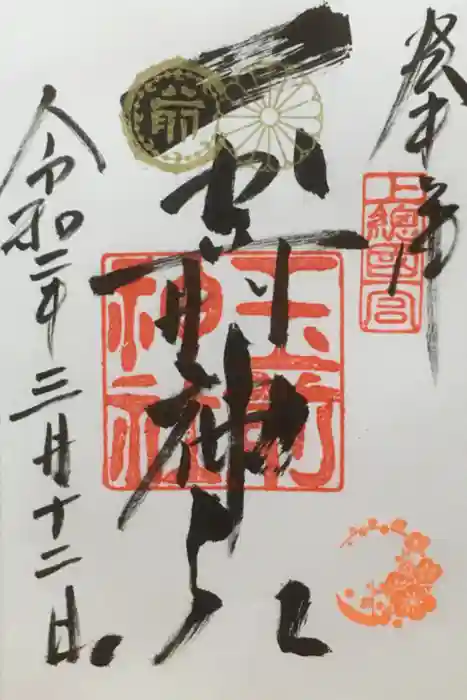 奉拝
上總國一宮
玉前神社
玉前神社
令和二年三月十二日